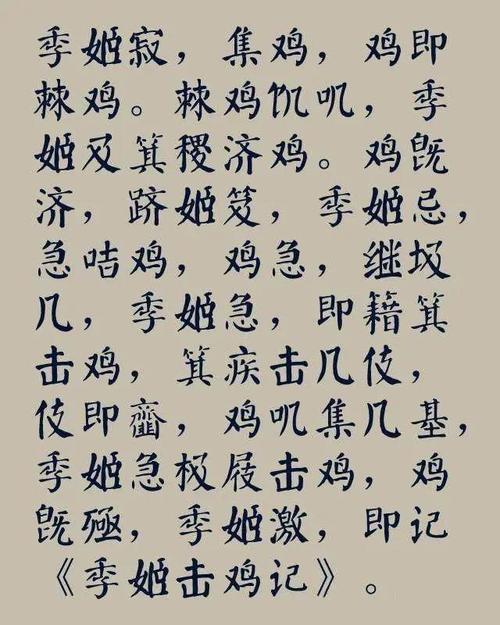 季姬寂，集鸡，鸡即
棘鸡。棘鸡饥叽，季
姬及箕稷济鸡。鸡既
济，跻姬笈，季姬忌，
急咭鸡，鸡急，继圾
几，季姬急，即籍箕
击鸡，箕疾击几伎，
伎即齑，鸡叽集几基，
季姬急极屐击鸡，鸡
既殛，季姬激，即记
《季姬击鸡记》。